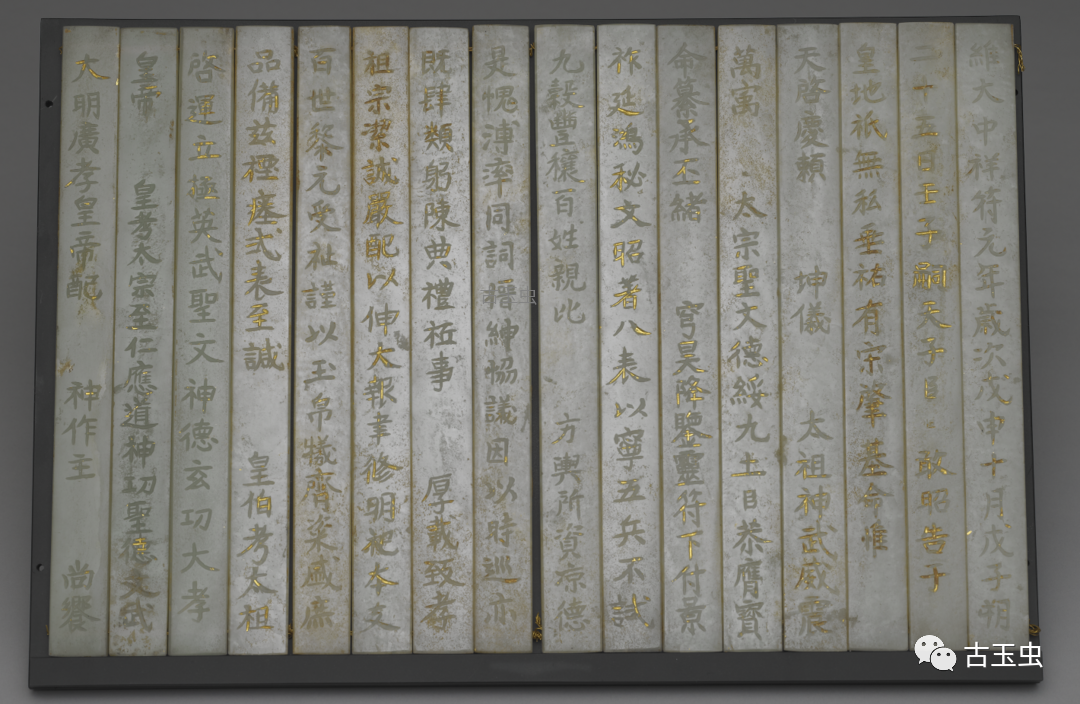 維大中祥符元年歲次戊申十月戊子朔
二十五日壬子嗣天子臣敢昭告于
皇地祇無私垂祐有宋肇基命惟
天啓慶賴 坤儀 太祖神武威震
萬寓 太宗聖文德綏九土臣恭膺寶
命纂承丕緒 穹昊降鑒靈符下付景
祚延鴻秘文昭著八表以寧五兵不試
九穀豐穰百姓親比 方輿所資凉德
是愧溥率同詞搢紳協議因以時巡亦
既肆類躬陳典禮祗事 厚載致孝
祖宗潔誠嚴配以伸大報聿修明祀本支
百世黎元受祉謹以玉帛犧齊粢盛庶
品備茲禋瘞式表至誠 皇伯考太祖
啓運立極英武聖文神德玄功大孝
皇帝 皇考太宗至仁應道神功聖德文武
大明廣孝皇帝配 神作主 尚饗
古玉虫